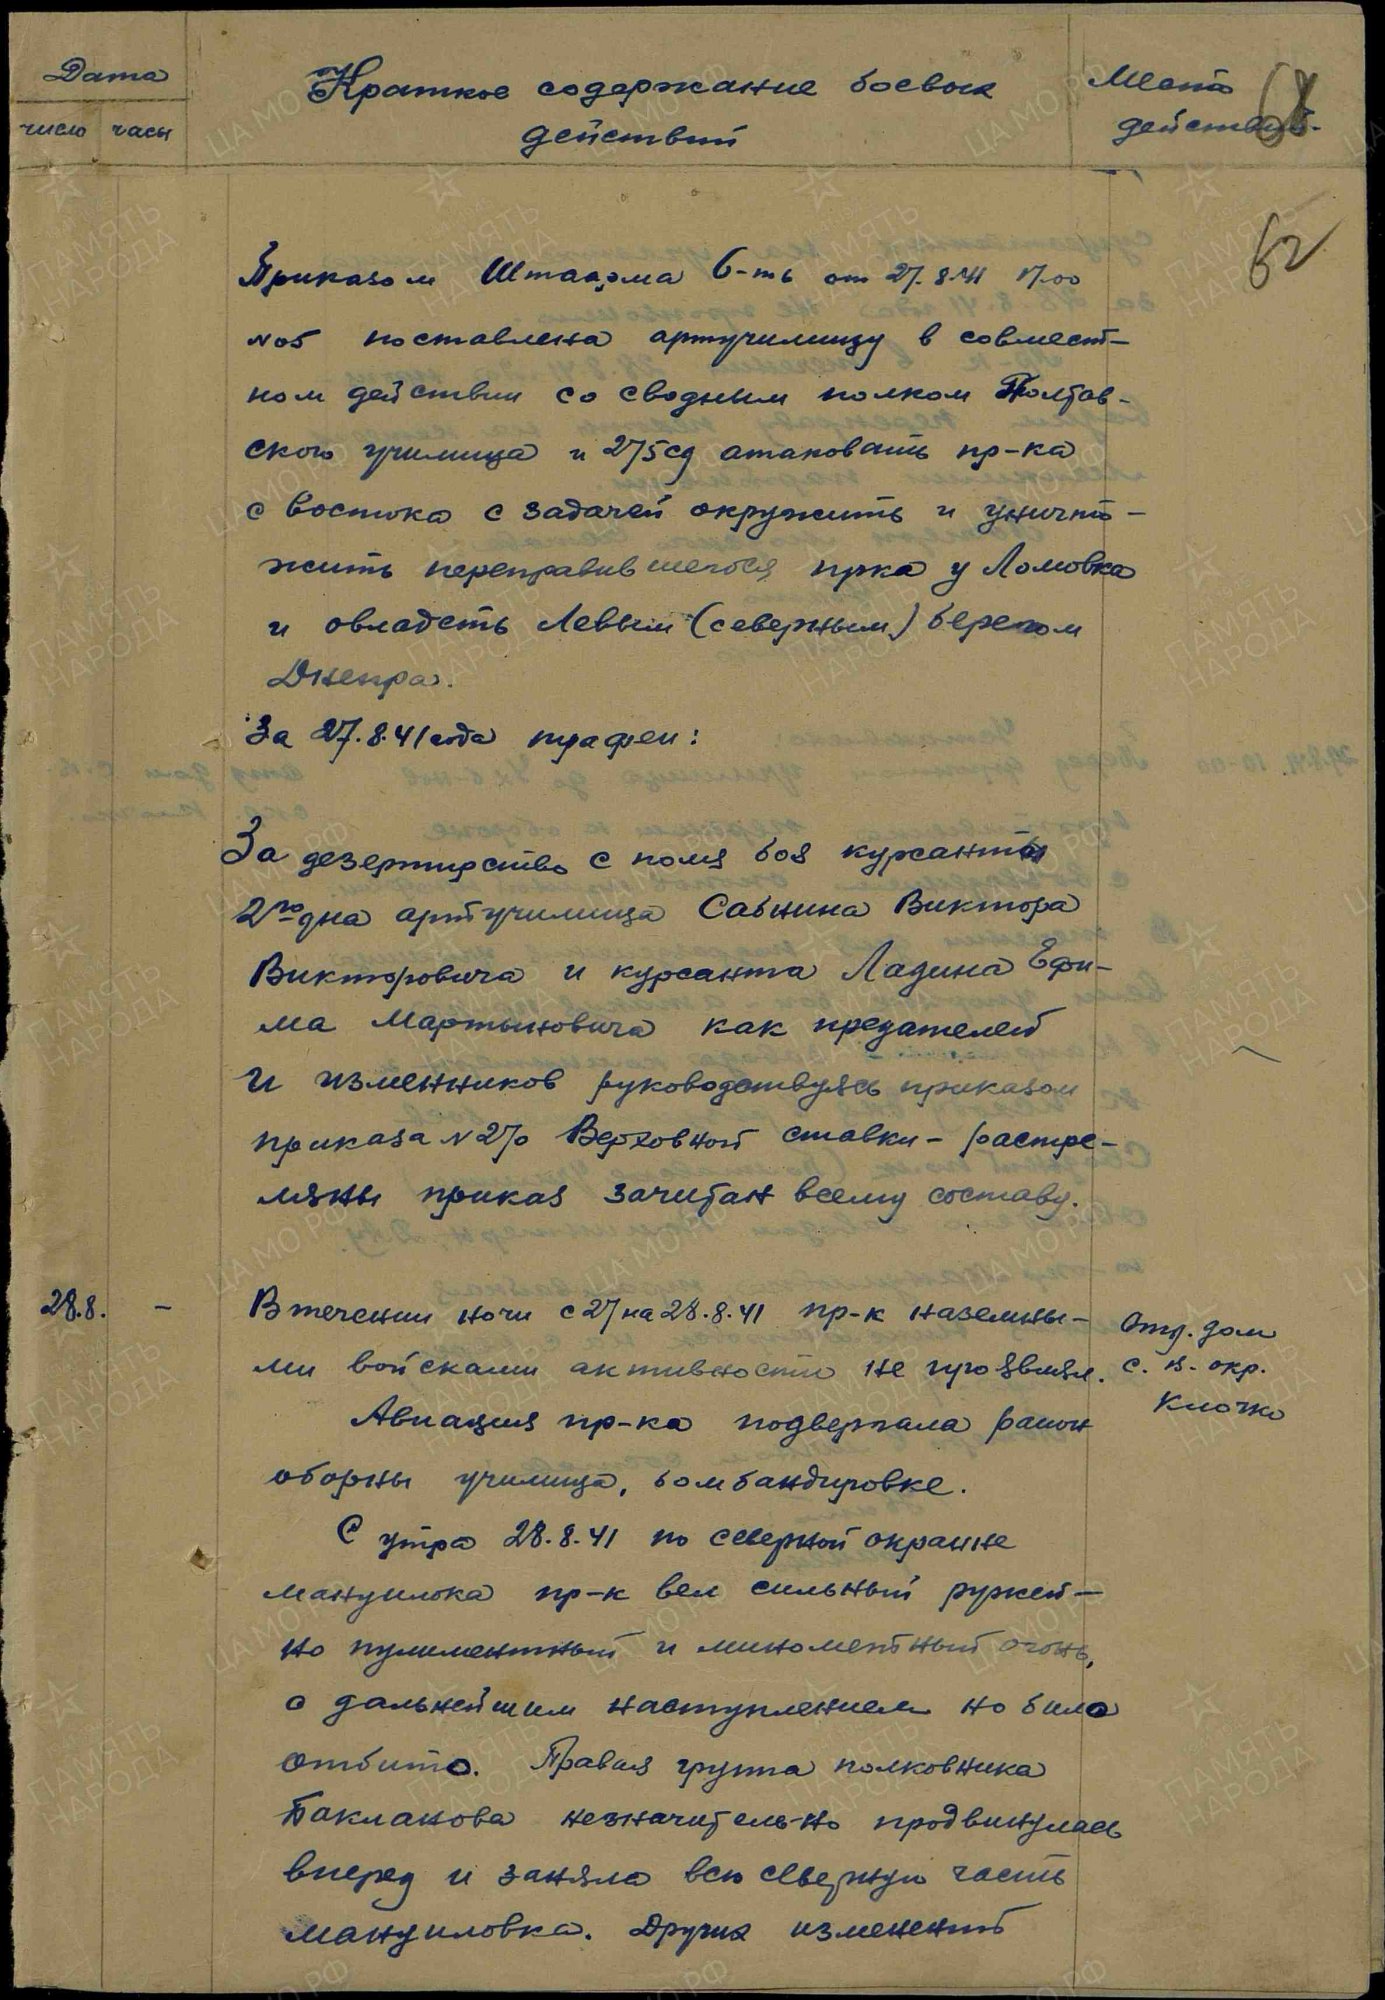 Дата
число часы
Краткое содержание боевых
действий
Место
действий.
62
Приказом Штаарма 6-ть от 27.8.41 17.00
№05 поставлена артучилищу в совмест-
ном действии со сводным полком Полтав-
ского училища и 275сд атаковать пр-ка
с востока с задачей окружить и уничто-
жить переправившегося прка у Ломовка
и овладеть Левым (северным) берегом
Днепра.
За 27.8.41 года трофеи:
За дезертирство с поля боя курсанты
2го дна артучилища Савнина Виктора
Викторовича и курсанта Ладина Ефи-
ма Мартыновича как предателей
и изменников руководствуясь приказом
приказа №270 Верховной ставки - растре-
ляны приказ зачитан всему составу.
28.8. -
В течении ночи с 27 на 28.8.41 пр-к наземны-
ми войсками активности не проявлял.
Отд. дом
с. в. окр.
Клочко
Авиация пр-ка подвергала район
обороны училища, бомбандировке.
С утра 28.8.41 по северной окраине
мануилока пр-к вел сильный ружей-
но пулиментный и минометный огонь,
с дальнейшим наступлением но было
отбито. Правая группа полковника
Бакланова незначительно продвинулась
вперед и заняла всю северную часть
мануиловка. Других изменений
ПАМЯТЬ НАРОДА
ЦА МО РФ